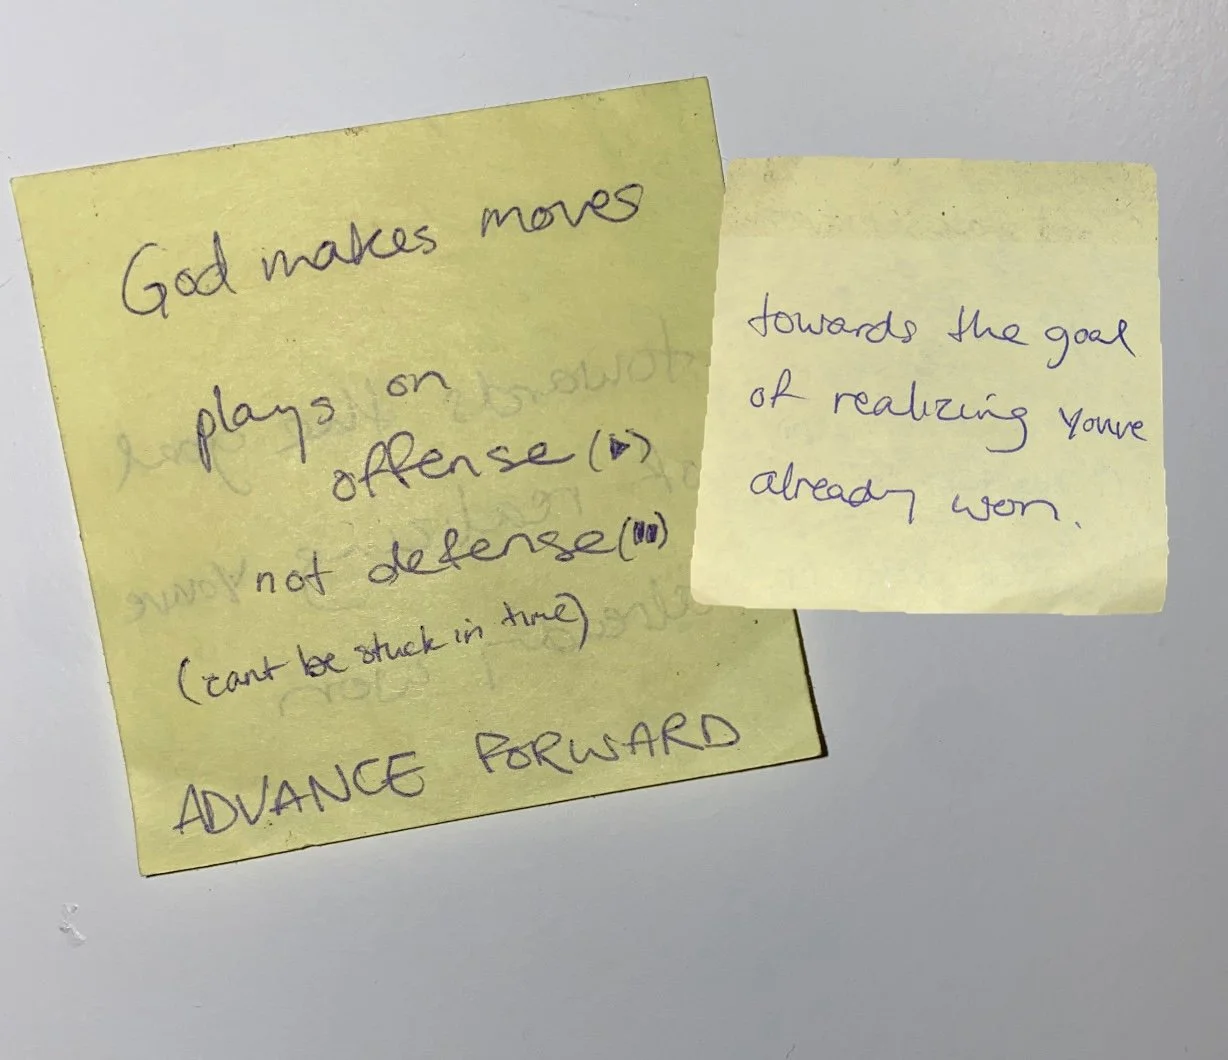 God makes moves
plays on
offense (▶)
not defense (⏸)
(cant be stuck in time)
ADVANCE FORWARD
towards the goal
of realizing youve
already won.